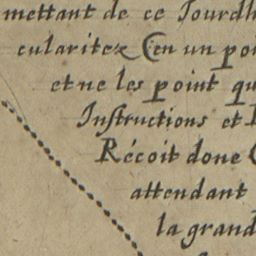 mettant de ce Jourdh
cularitez Cen un poi
et ne les point qu
Instructions et
Récoit donc
attendant
la grand